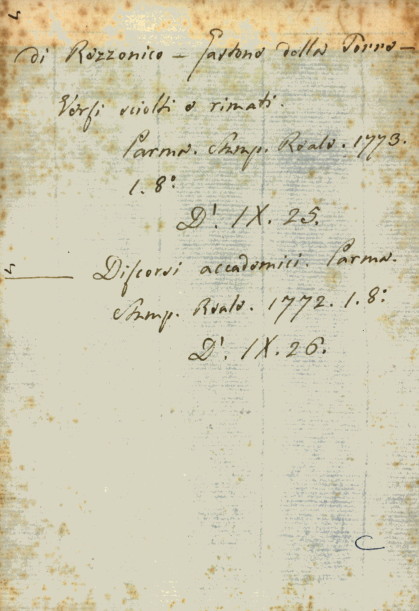 di Rezzonico – Gastone della Torre –
Versi sciolti e rimati.
Parma. Stamp. Reale. 1773.
1. 8°.
D'. IX. 25.
Discorsi accademici. Parma.
Stamp. Reale. 1772. 1. 8°.
D'. IX. 26.
C